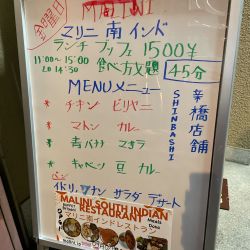 金曜日
MALINI
マリニ 南 インド
ランチ ブッフェ 1500¥
11:00~15:00
LO 14:30
食べ放題
45分
MENU メニュー
* チキン ビリヤニ
* マトン カレー
* 青バナナ
* キャベツ 豆 カレー
サラダ デザート
新橋店舗
SHINBASHI
MALINI SOUTH INDIAN
RESTAURANT
マリニ南インドレストラン
Meals
Dosa